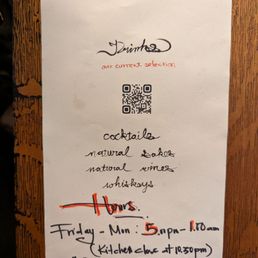 Drinks
our current selection
cocktails
natural sakes
natural wines
whiskeys
Hours.
Friday - Mon : 5.npn - 1.00am
(Kitchen close at 10.30pm)